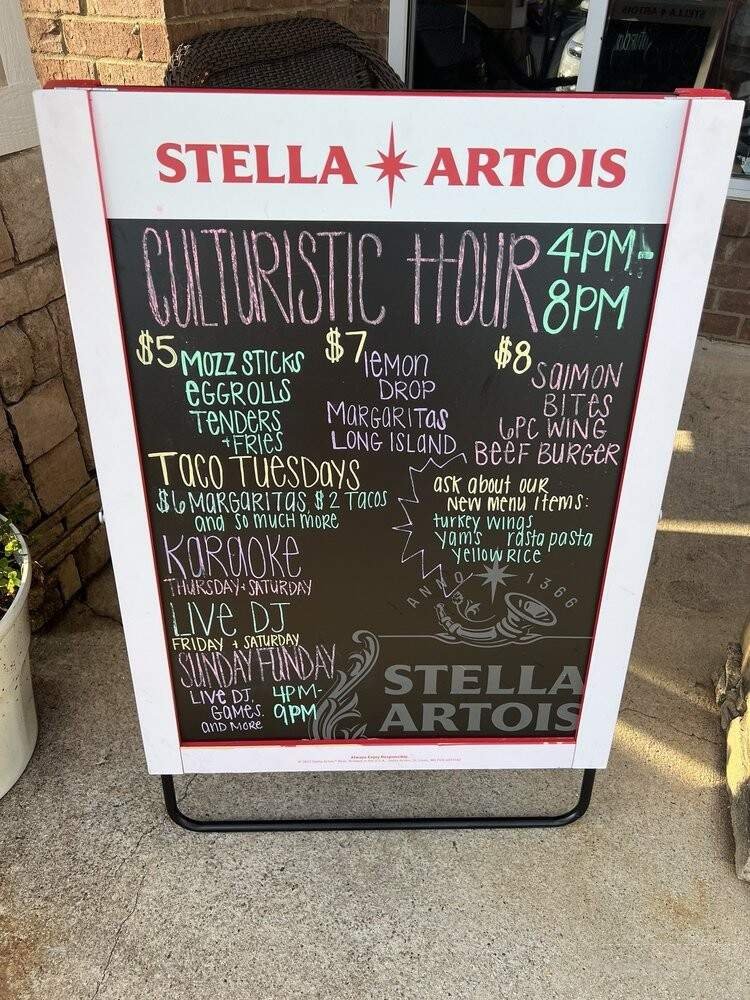 STELLA ARTOIS
CULTURISTIC HOUR 4PM-
8PM
$5 MOZZ STICKS
EGGROLLS
TENDERS
+ FRIES
$7 LEMON
DROP
MARGARITAS
LONG ISLAND
$8 SALMON
BITES
6PC WING
BEEF BURGER
TACO TUESDAYS
$6 MARGARITAS, $2 TACOS
and so much more
ask about our
New Menu Items:
turkey wings
yams rasta pasta
yellow rice
KARAOKE
THURSDAY + SATURDAY
LIVE DJ
FRIDAY + SATURDAY
SUNDAY FUNDAY
LIVE DJ, 4PM-
GAMES, 9PM
AND MORE
ANNO 1366
STELLA
ARTOIS
Always Enjoy Responsibly.